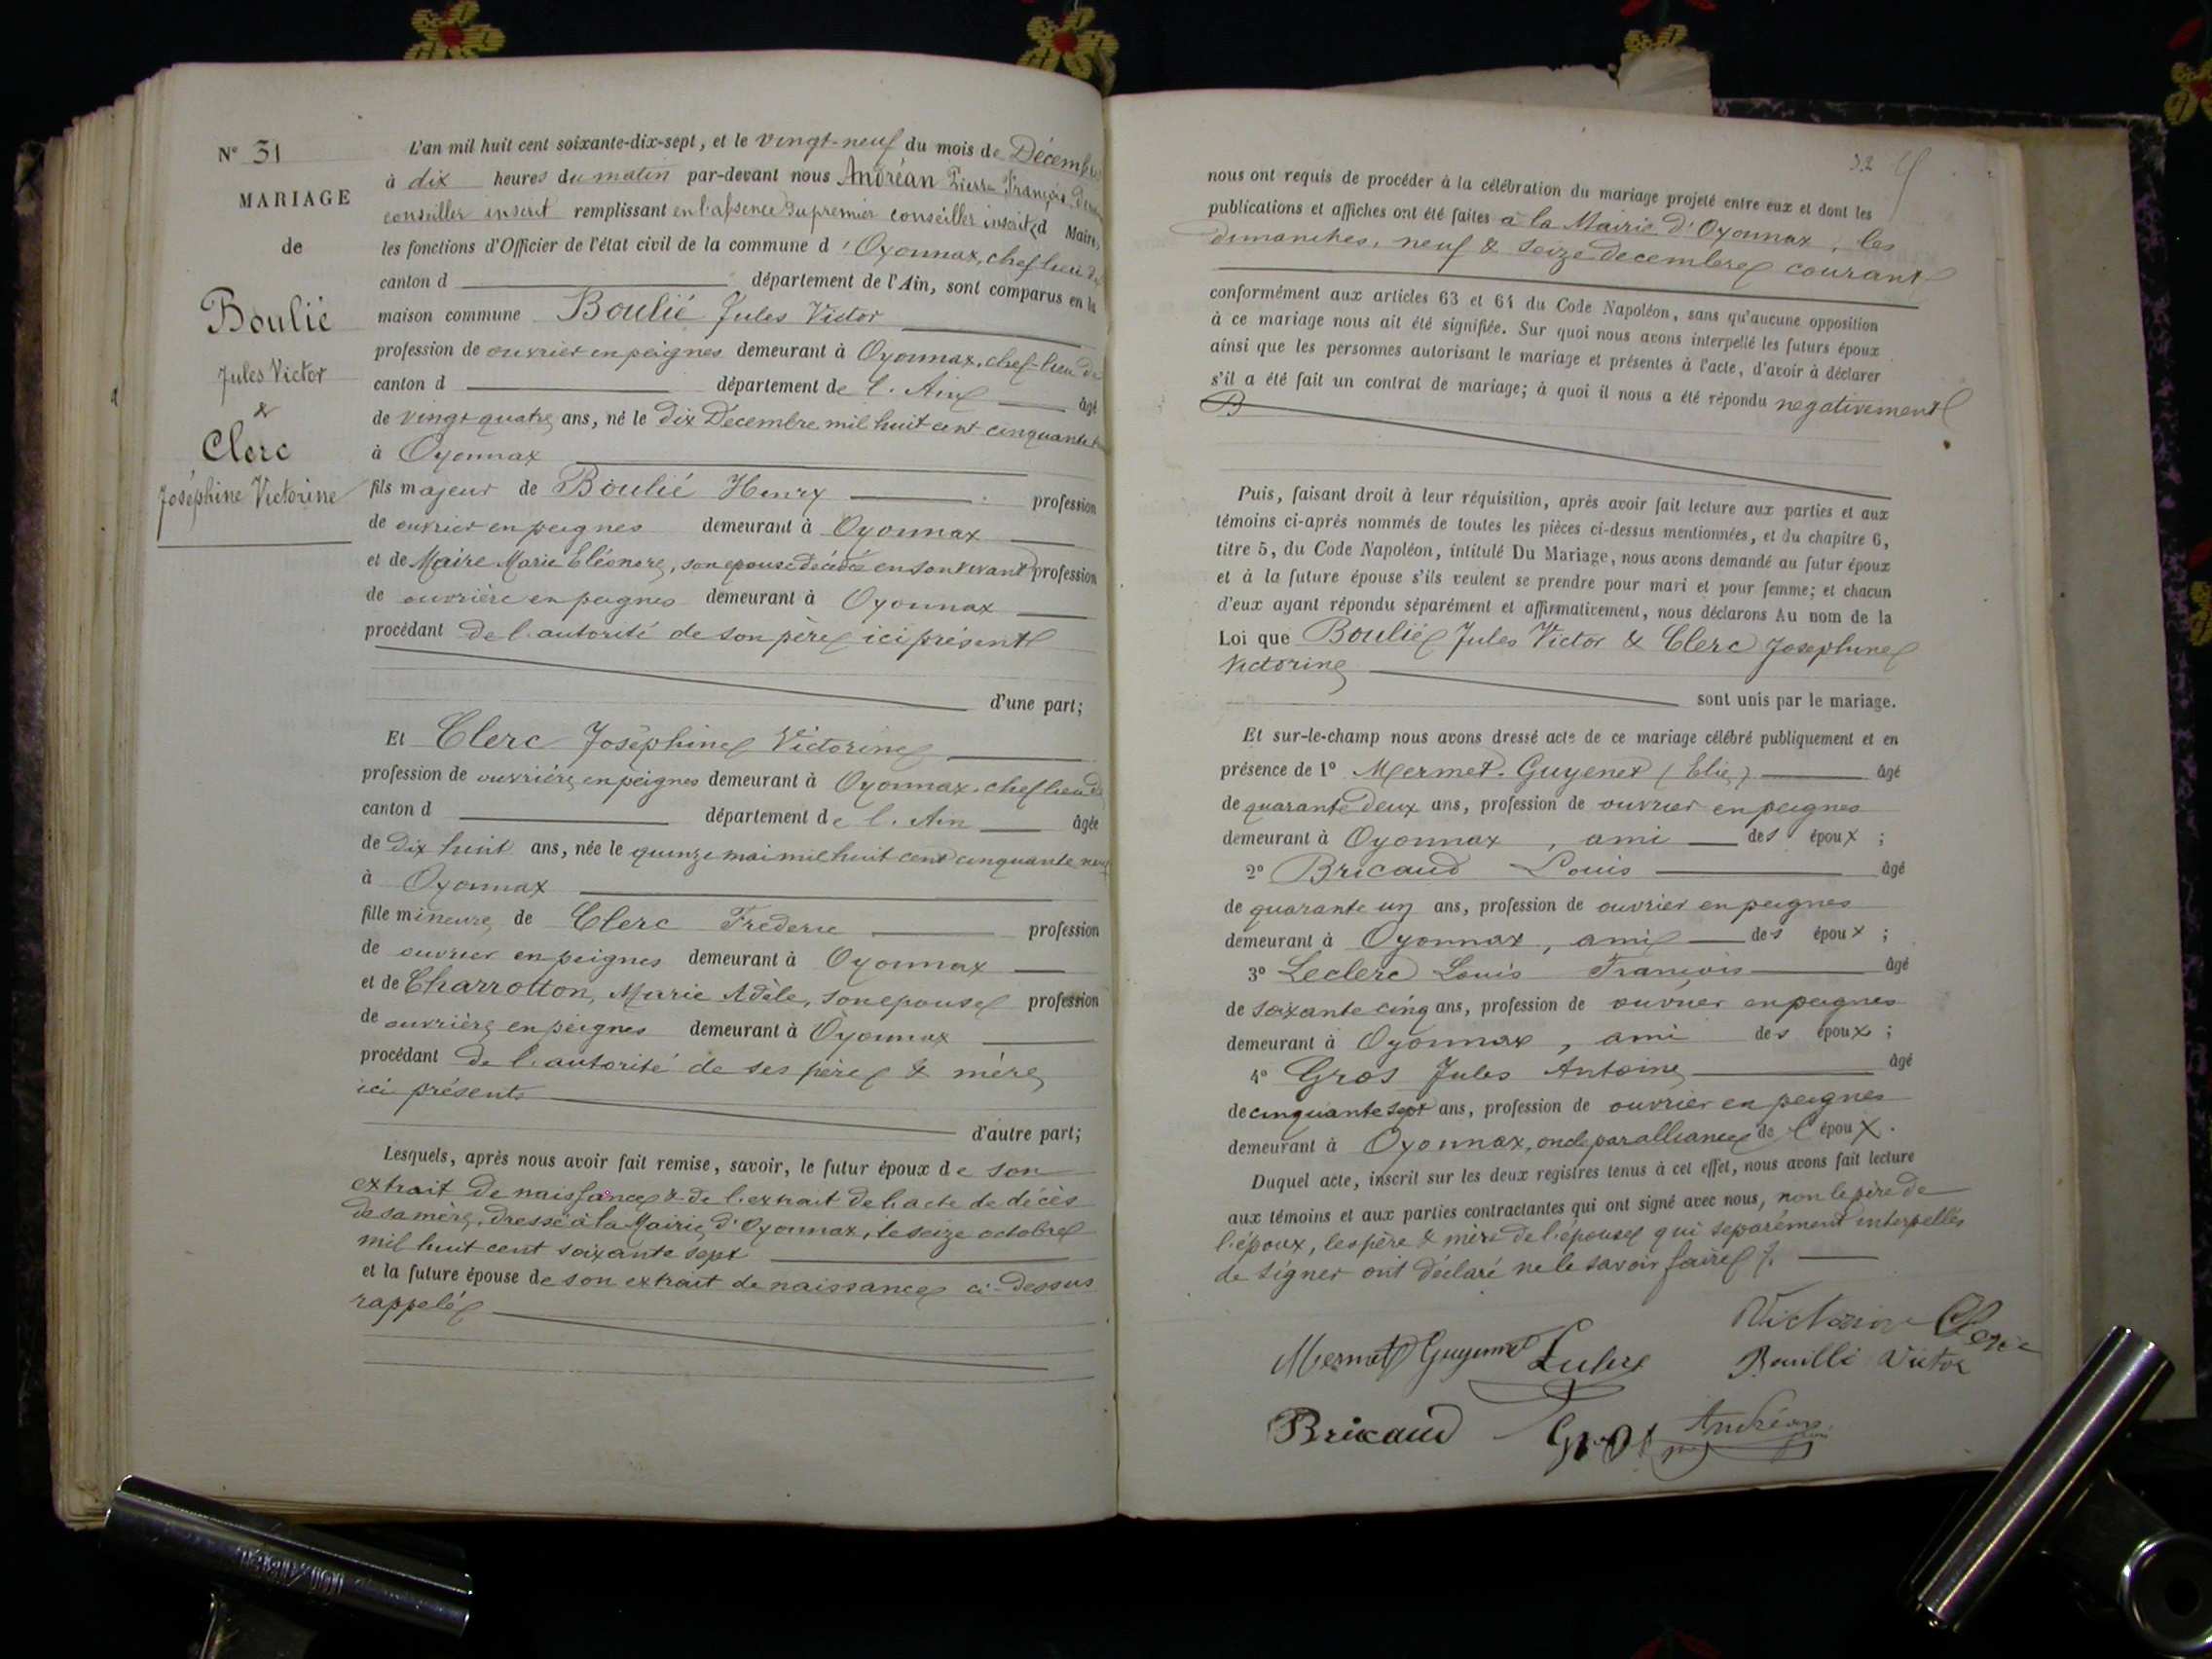 N° 31
MARIAGE
de
Boulié
Jules Victor
&
Clerc
Joséphine Victorine
L'an mil huit cent soixante-dix-sept, et le vingt-neuf du mois de Décembre
à dix heures du matin par-devant nous Andréan Pierre François
conseiller inscrit remplissant en l'absence du premier conseiller inscrit d Maire,
les fonctions d'Officier de l'état civil de la commune d'Oyonnax, chef lieu de
canton d département de l'Ain, sont comparus en la
maison commune Boulié Jules Victor
profession de ouvrier en peignes demeurant à Oyonnax, chef-lieu de
canton d département de l'Ain âgé
de vingt quatre ans, né le dix Décembre mil huit cent cinquante
à Oyonnax
fils majeur de Boulié Henry profession
de ouvrier en peignes demeurant à Oyonnax
et de Maire Marie Eléonore, son epouse décédée en son vivant profession
de ouvrière en peignes demeurant à Oyonnax
procédant de l'autorité de son père ici présent
d'une part;
Et Clerc Joséphine Victorine
profession de ouvrière en peignes demeurant à Oyonnax, chef lieu de
canton d département de l'Ain âgée
de dix huit ans, née le quinze mai mil huit cent cinquante neuf
à Oyonnax
fille mineure de Clerc Frederic profession
de ouvrier en peignes demeurant à Oyonnax
et de Charrotton, Marie Adèle, son epouse profession
de ouvrière en peignes demeurant à Oyonnax
procédant de l'autorité de ses père & mère
ici présents
d'autre part;
Lesquels, après nous avoir fait remise, savoir, le futur époux de son
extrait de naissance & de l'extrait de l'acte de décès
de sa mère, dressé à la Mairie d'Oyonnax, le seize octobre
mil huit cent soixante sept
et la future épouse de son extrait de naissance ci-dessus
rappelé
32
nous ont requis de procéder à la célébration du mariage projeté entre eux et dont les
publications et affiches ont été faites à la Mairie d'Oyonnax, les
dimanches, neuf & seize decembre courant
conformément aux articles 63 et 64 du Code Napoléon, sans qu'aucune opposition
à ce mariage nous ait été signifiée. Sur quoi nous avons interpellé les futurs époux
ainsi que les personnes autorisant le mariage et présentes à l'acte, d'avoir à déclarer
s'il a été fait un contrat de mariage; à quoi il nous a été répondu negativement
Puis, faisant droit à leur réquisition, après avoir fait lecture aux parties et aux
témoins ci-après nommés de toutes les pièces ci-dessus mentionnées, et du chapitre 6,
titre 5, du Code Napoléon, intitulé Du Mariage, nous avons demandé au futur époux
et à la future épouse s'ils veulent se prendre pour mari et pour femme; et chacun
d'eux ayant répondu séparément et affirmativement, nous déclarons Au nom de la
Loi que Boulié Jules Victor & Clerc Josephine
Victorine
sont unis par le mariage.
Et sur-le-champ nous avons dressé acte de ce mariage célébré publiquement et en
présence de 1° Mermet-Guyenet (Elie) âgé
de quarante deux ans, profession de ouvrier en peignes
demeurant à Oyonnax, ami des époux;
2° Bricaud Louis âgé
de quarante un ans, profession de ouvrier en peignes
demeurant à Oyonnax, ami des époux;
3° Leclerc Louis François âgé
de soixante cinq ans, profession de ouvrier en peignes
demeurant à Oyonnax, ami des époux;
4° Gros Jules Antoine âgé
de cinquante sept ans, profession de ouvrier en peignes
demeurant à Oyonnax, oncle par alliance de l'époux.
Duquel acte, inscrit sur les deux registres tenus à cet effet, nous avons fait lecture
aux témoins et aux parties contractantes qui ont signé avec nous, non le père de
l'époux, les père & mère de l'épouse qui séparément interpellés
de signer ont déclaré ne le savoir faire
Victorine Clerc
Mermet Guyenet
Bouillé Victor
Bricaud Gros Andréan